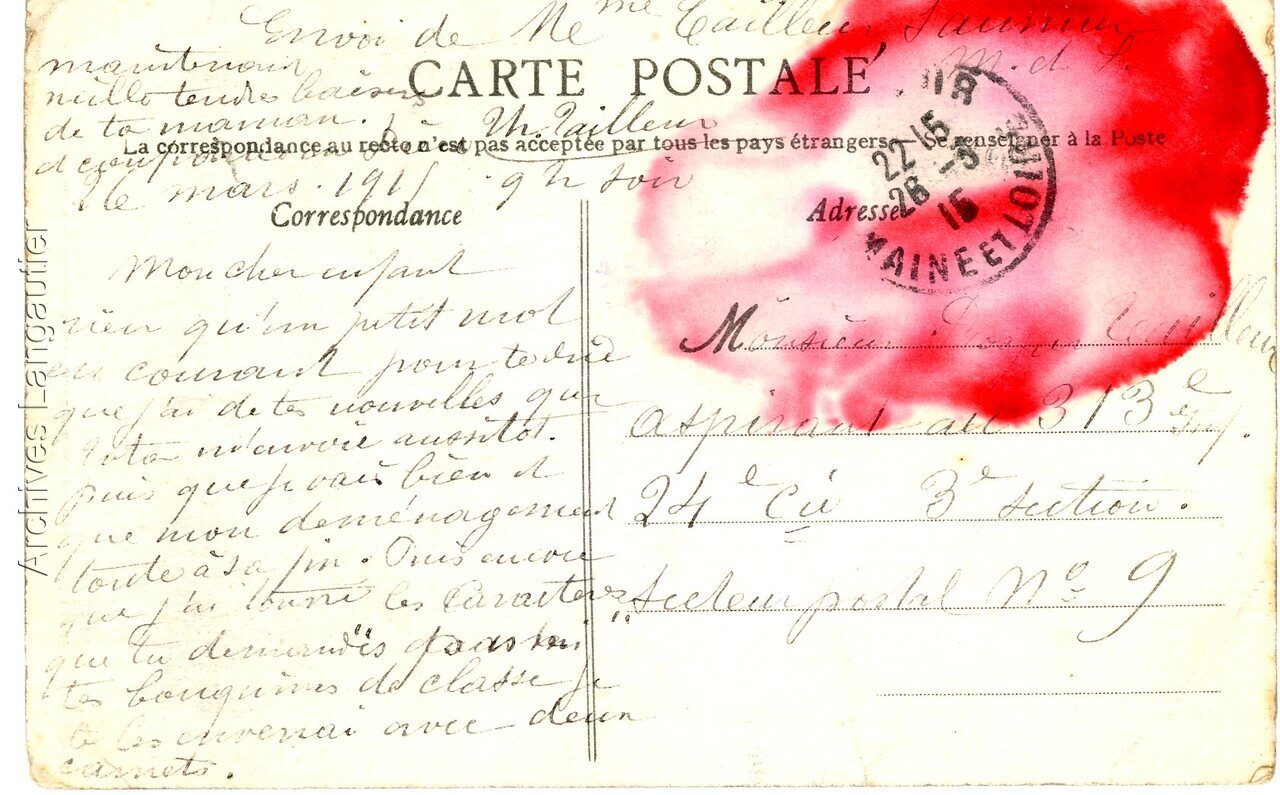 Envoi de Mme Tailleur Saumur
M. et L.
maintenant
mille tendres baisers
de ta maman.
Th. Tailleur
CARTE POSTALE
La correspondance au recto n'est pas acceptée par tous les pays étrangers. — Se renseigner à la Poste
26 mars. 1915 9 h soir
Correspondance
Mon cher enfant
rien qu'un petit mot
en courant pour te dire
que j'ai de tes nouvelles que
m'envoie aussitot.
Puis que je vais bien et
que mon déménagement
touche à sa fin. Puis encore
que j'ai trouvé les Caractères
que tu demandes parmi
tes bouquins de classe je
te les enverrai avec deux
carnets.
Adresse
22 15
26 -3
15
MAINE ET LOIRE
Monsieur Tailleur
aspirant au 313e Inf.
24e Cie 3e section.
Secteur postal No 9
Archives Langautier